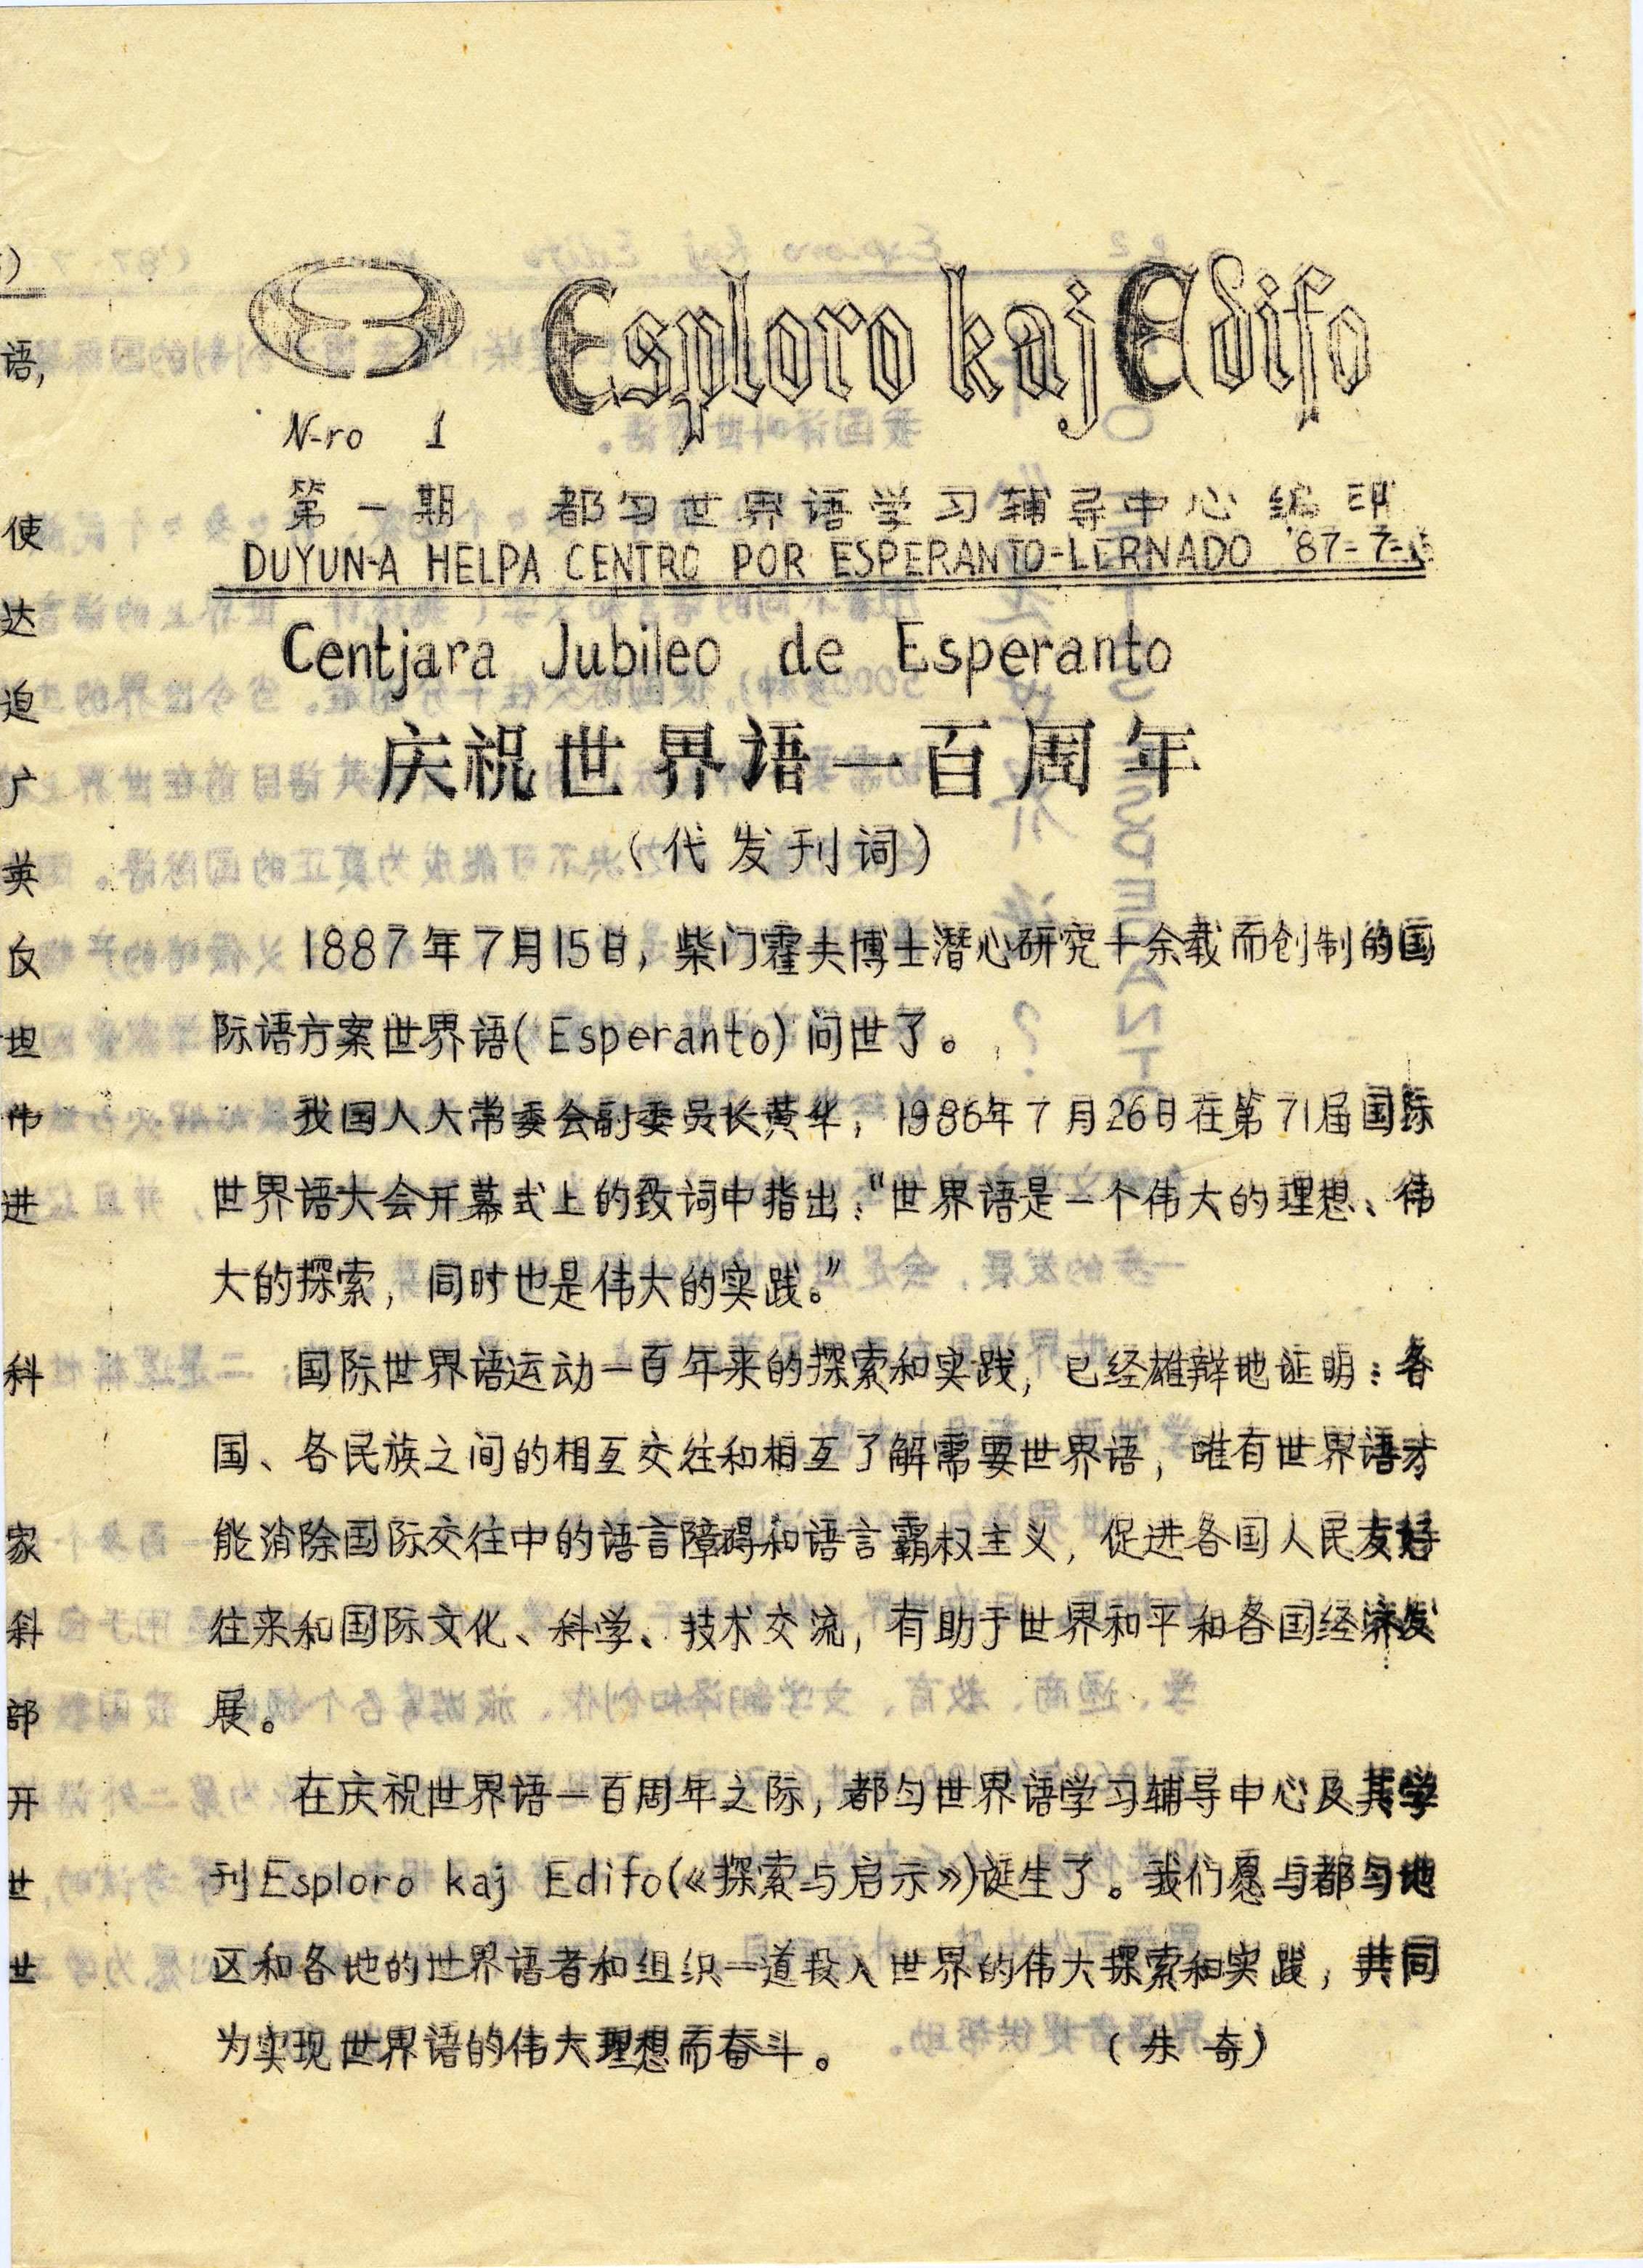 Esploro kaj Edifo
N-ro 1
第一期 都匀世界语学习辅导中心编印
DUYUN-A HELPA CENTRO POR ESPERANTO-LERNADO '87-7-
Centjara Jubileo de Esperanto
庆祝世界语一百周年
(代发刊词)
1887年7月15日，柴门霍夫博士潜心研究十余载而创制的国
际语方案世界语(Esperanto)问世了。
我国人大常委会副委员长黄华，1986年7月26日在第71届国际
世界语大会开幕式上的致词中指出："世界语是一个伟大的理想、伟
大的探索，同时也是伟大的实践。"
国际世界语运动一百年来的探索和实践，已经雄辩地证明：各
国、各民族之间的相互交往和相互了解需要世界语，唯有世界语才
能消除国际交往中的语言障碍和语言霸权主义，促进各国人民友好
往来和国际文化、科学、技术交流，有助于世界和平和各国经济发
展。
在庆祝世界语一百周年之际，都匀世界语学习辅导中心及其学
刊Esploro kaj Edifo(《探索与启示》)诞生了。我们愿与都匀地
区和各地的世界语者和组织一道投入世界的伟大探索和实践，共同
为实现世界语的伟大理想而奋斗。 (朱奇)
语,
使
达
迫
广
英
仅
坦
伟
进
科
家
科
部
开
世
世